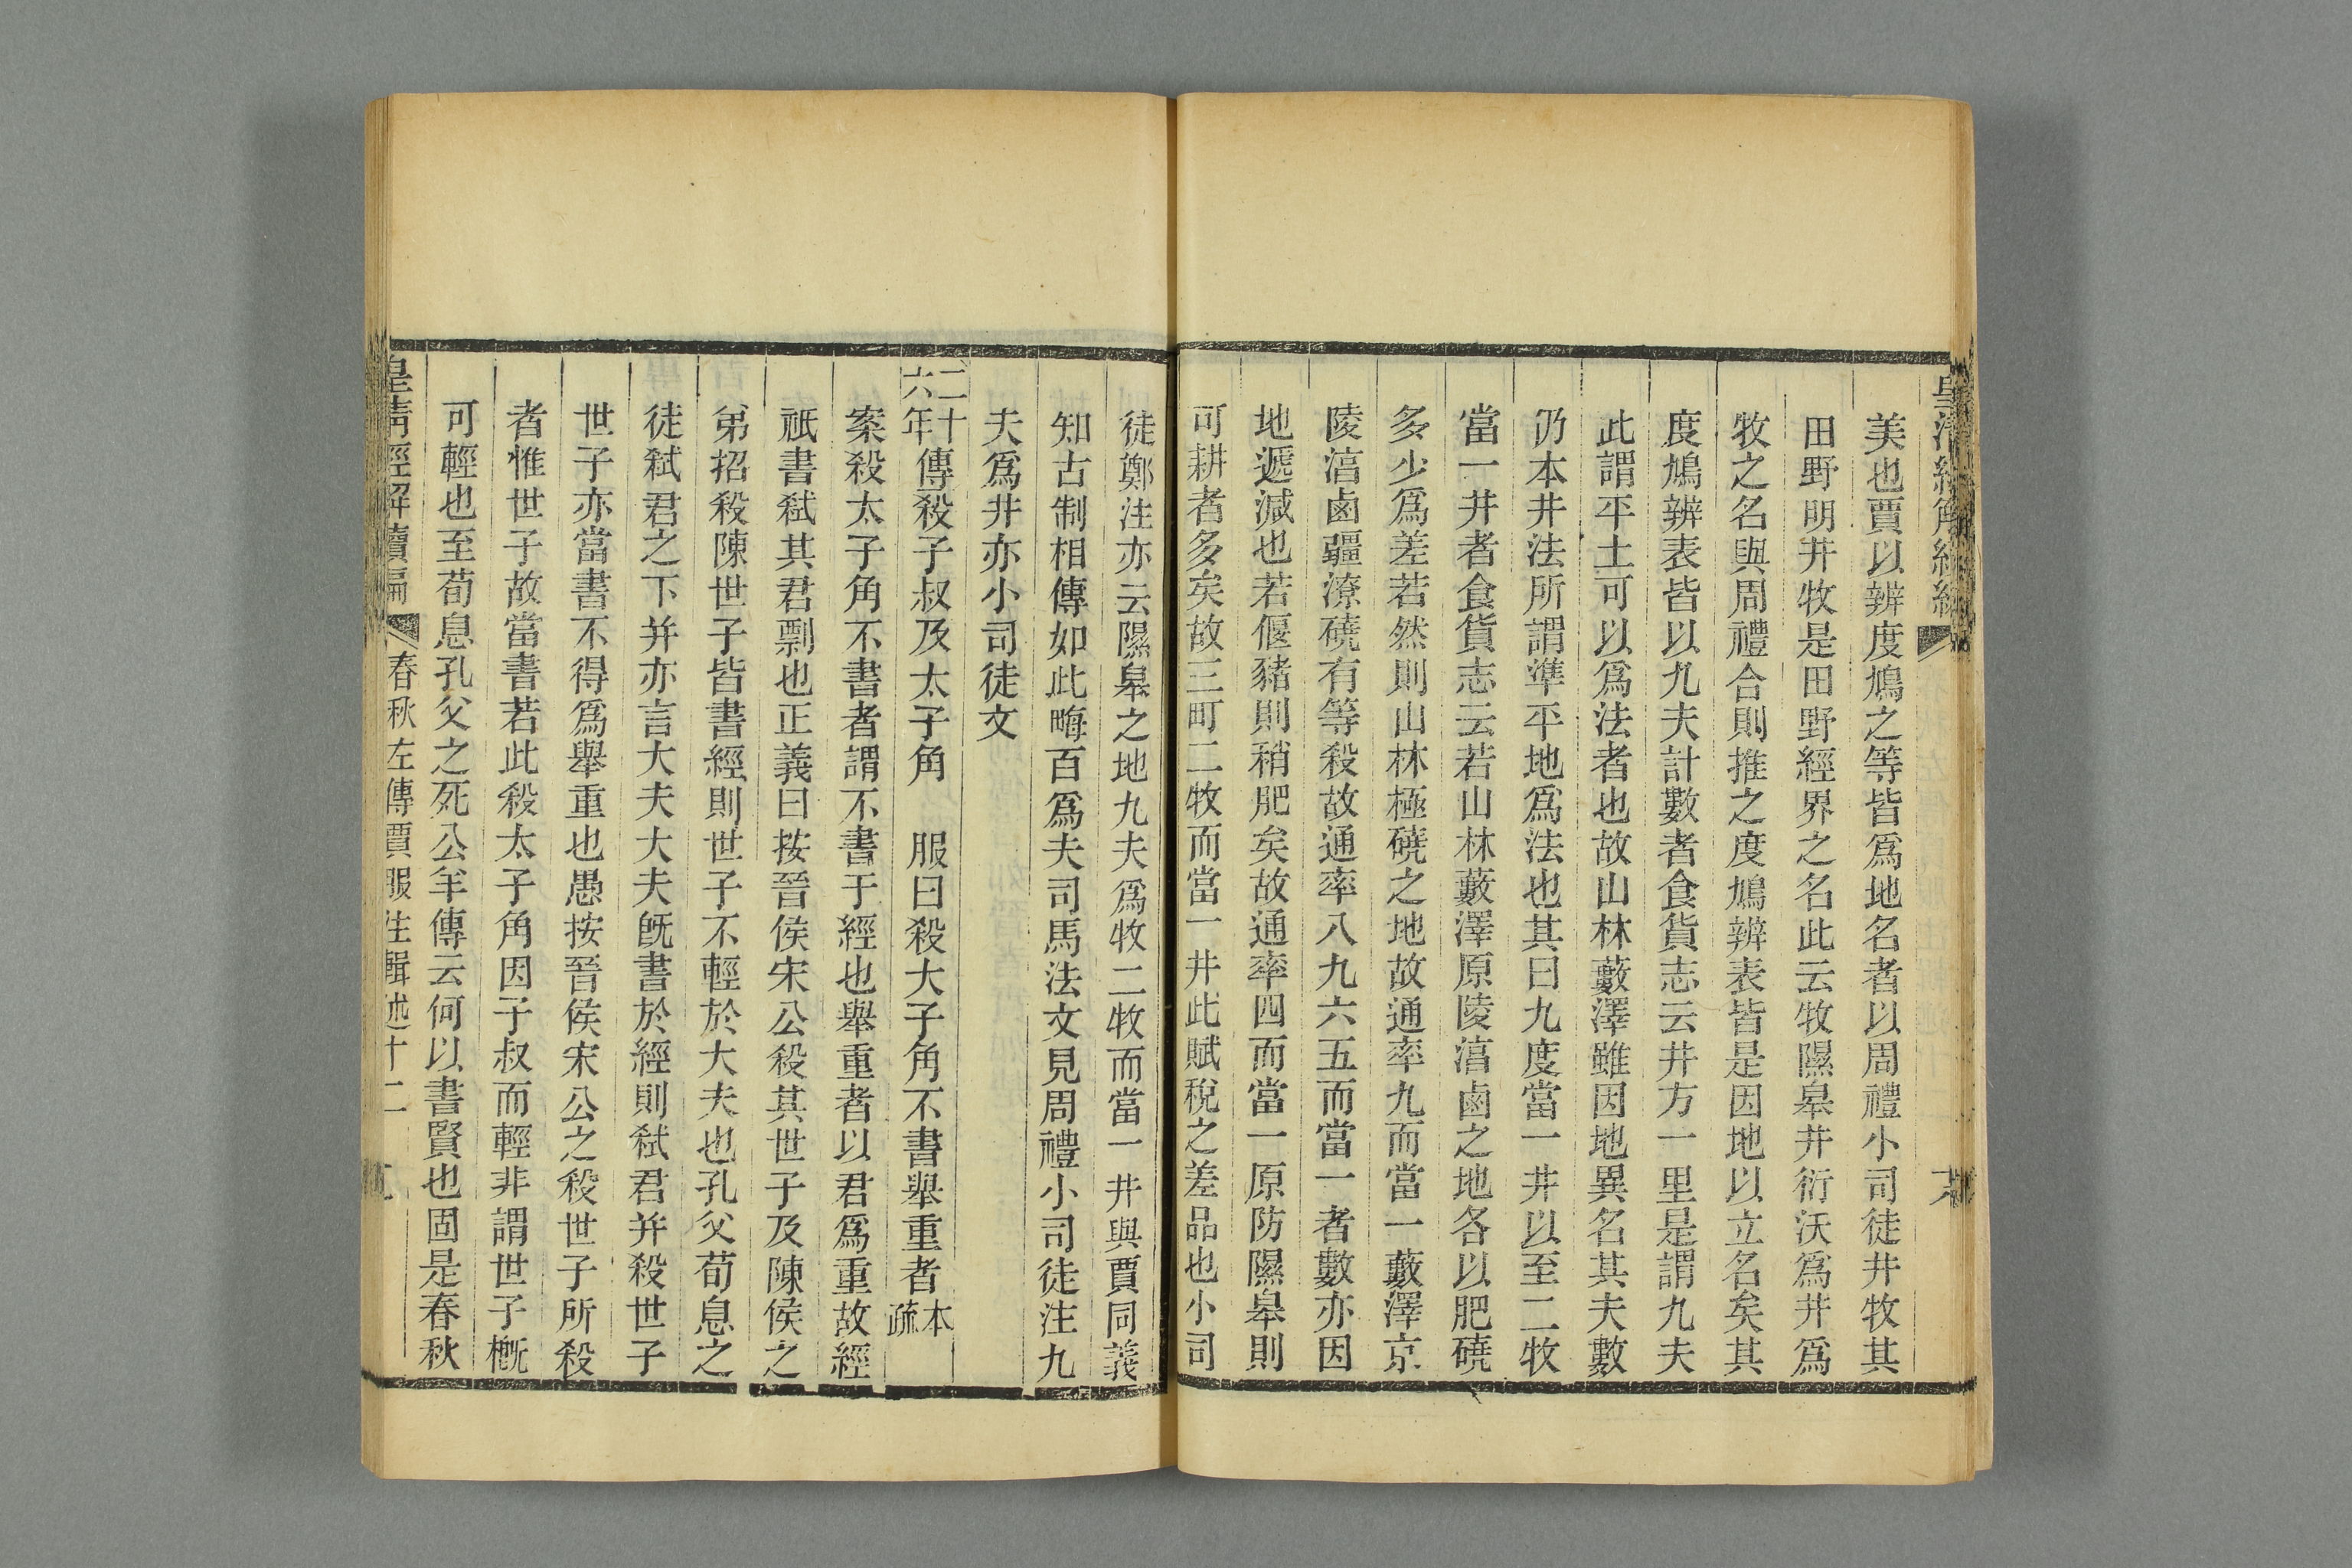 美也賈以辨度鳩之等皆爲地名者以周禮小司徒井牧其
田野明井牧是田野經界之名此云牧隰皋井衍沃爲井爲
牧之名與周禮合則推之度鳩辨表皆是因地以立名矣其
度鳩辨表皆以九夫計數者食貨志云井方一里是謂九夫
此謂平土可以爲法者也故山林藪澤雖因地異名其夫數
仍本井法所謂準平地爲法也其曰九度當一井以至二牧
當一井者食貨志云若山林藪澤原陵淳鹵之地各以肥磽
多少爲差若然則山林極磽之地故通率九而當一藪澤京
陵淳鹵疆潦磽有等殺故通率八九六五而當一者數亦因
地遞減也若偃豬則稍肥矣故通率四而當一原防隰皋則
可耕者多矣故三町二牧而當一井此賦稅之差品也小司
徒鄭注亦云隰皋之地九夫爲牧二牧而當一井與賈同義
知古制相傳如此畮百爲夫司馬法文見周禮小司徒注九
夫爲井亦小司徒文
二十六年傳殺子叔及太子角　服曰殺大子角不書舉重者本疏
案殺太子角不書者謂不書于經也舉重者以君爲重故經
祇書弒其君剽也正義曰按晉侯宋公殺其世子及陳侯之
弟招殺陳世子皆書經則世子不輕於大夫也孔父荀息之
徒弒君之下并亦言大夫大夫既書於經則弒君并殺世子
世子亦當書不得爲舉重也愚按晉侯宋公之殺世子所殺
者惟世子故當書若此殺太子角因子叔而輕非謂世子槪
可輕也至荀息孔父之死公羊傳云何以書賢也固是春秋
皇淸經解續編　春秋左傳賈服注輯述十二